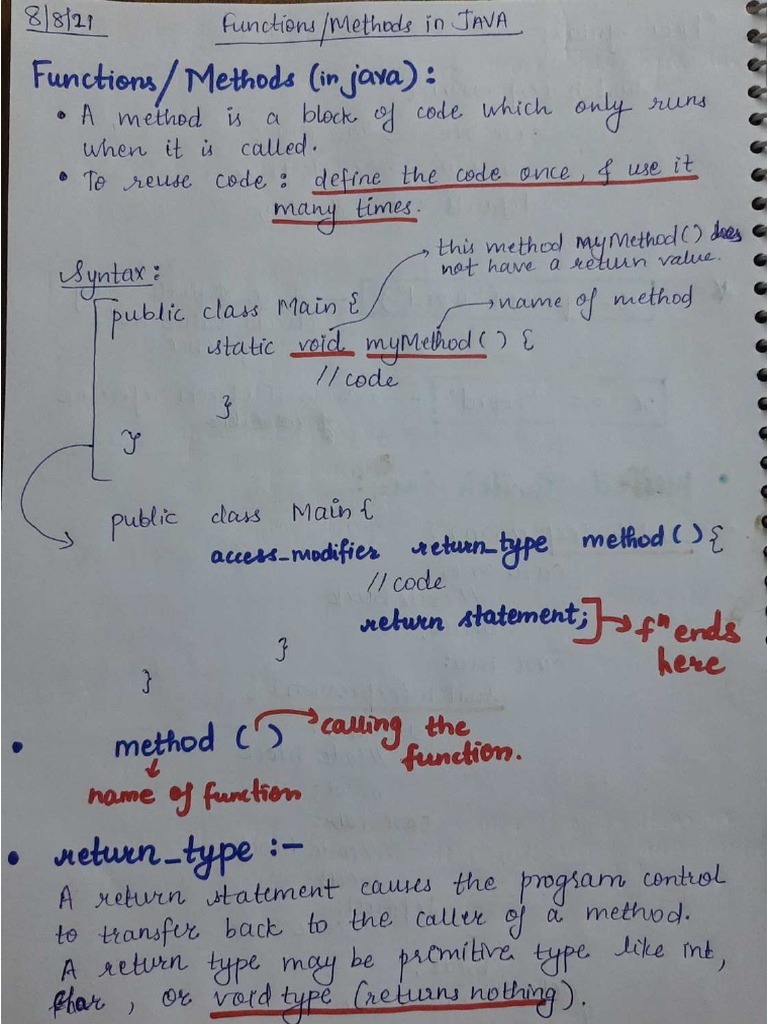 8/8/21
Functions/Methods in JAVA
Functions/Methods (in java):
• A method is a block of code which only runs
when it is called.
• To reuse code: define the code once, & use it
many times.
this method myMethod() does
not have a return value.
Syntax:
public class Main {
name of method
static void myMethod() {
//code
}
}
public class Main {
access_modifier return_type method() {
//code
return statement;
fⁿ ends
here
}
}
• method ()
calling the
function.
name of function
• return_type :-
A return statement causes the program control
to transfer back to the caller of a method.
A return type may be premitive type like int,
char, or void type (returns nothing).